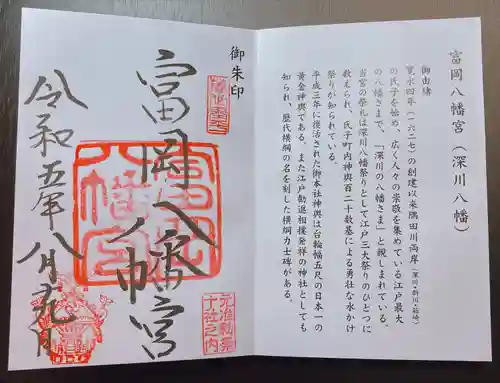 富岡八幡宮（深川八幡）
御由緒
寛永四年（一六二七）の創建以来隅田川両岸（深川・新川・箱崎）
の氏子を始め、広く人々の崇敬を集めている江戸最大
の八幡さまで、「深川の八幡さま」と親しまれている。
当宮の祭礼は深川八幡祭りとして江戸三大祭りのひとつに
数えられ、氏子町内神輿百二十数基による勇壮な水かけ
祭りが知られている。
平成三年に復活された御本社神輿は台輪幅五尺の日本一の
黄金神輿である。また江戸勧進相撲発祥の神社としても
知られ、歴代横綱の名を刻した横綱力士碑がある。
御朱印
富岡八幡宮
富岡八幡宮
元准勅祭
十社之内
令和五年八月